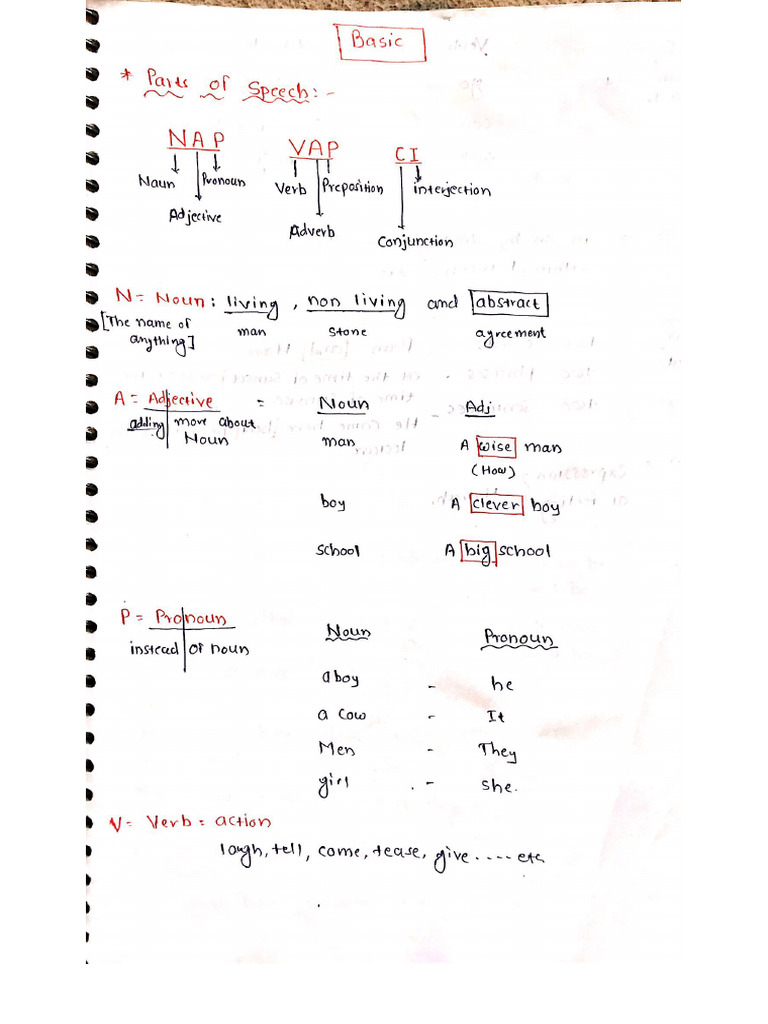 Basic
* Parts of Speech:-
NAP VAP CI
Naun Pronoun Verb Preposition interjection
Adjective Adverb Conjunction
N= Noun: living, non living and abstract
[The name of man stone agreement
anything]
A = Adjective = Noun Adj
adding more about
Noun man A wise man
(How)
boy A clever boy
school A big school
P = Pronoun Noun Pronoun
instead of noun
a boy - he
a cow - It
Men - They
girl - she.
V= Verb = action
laugh, tell, come, tease, give..... etc